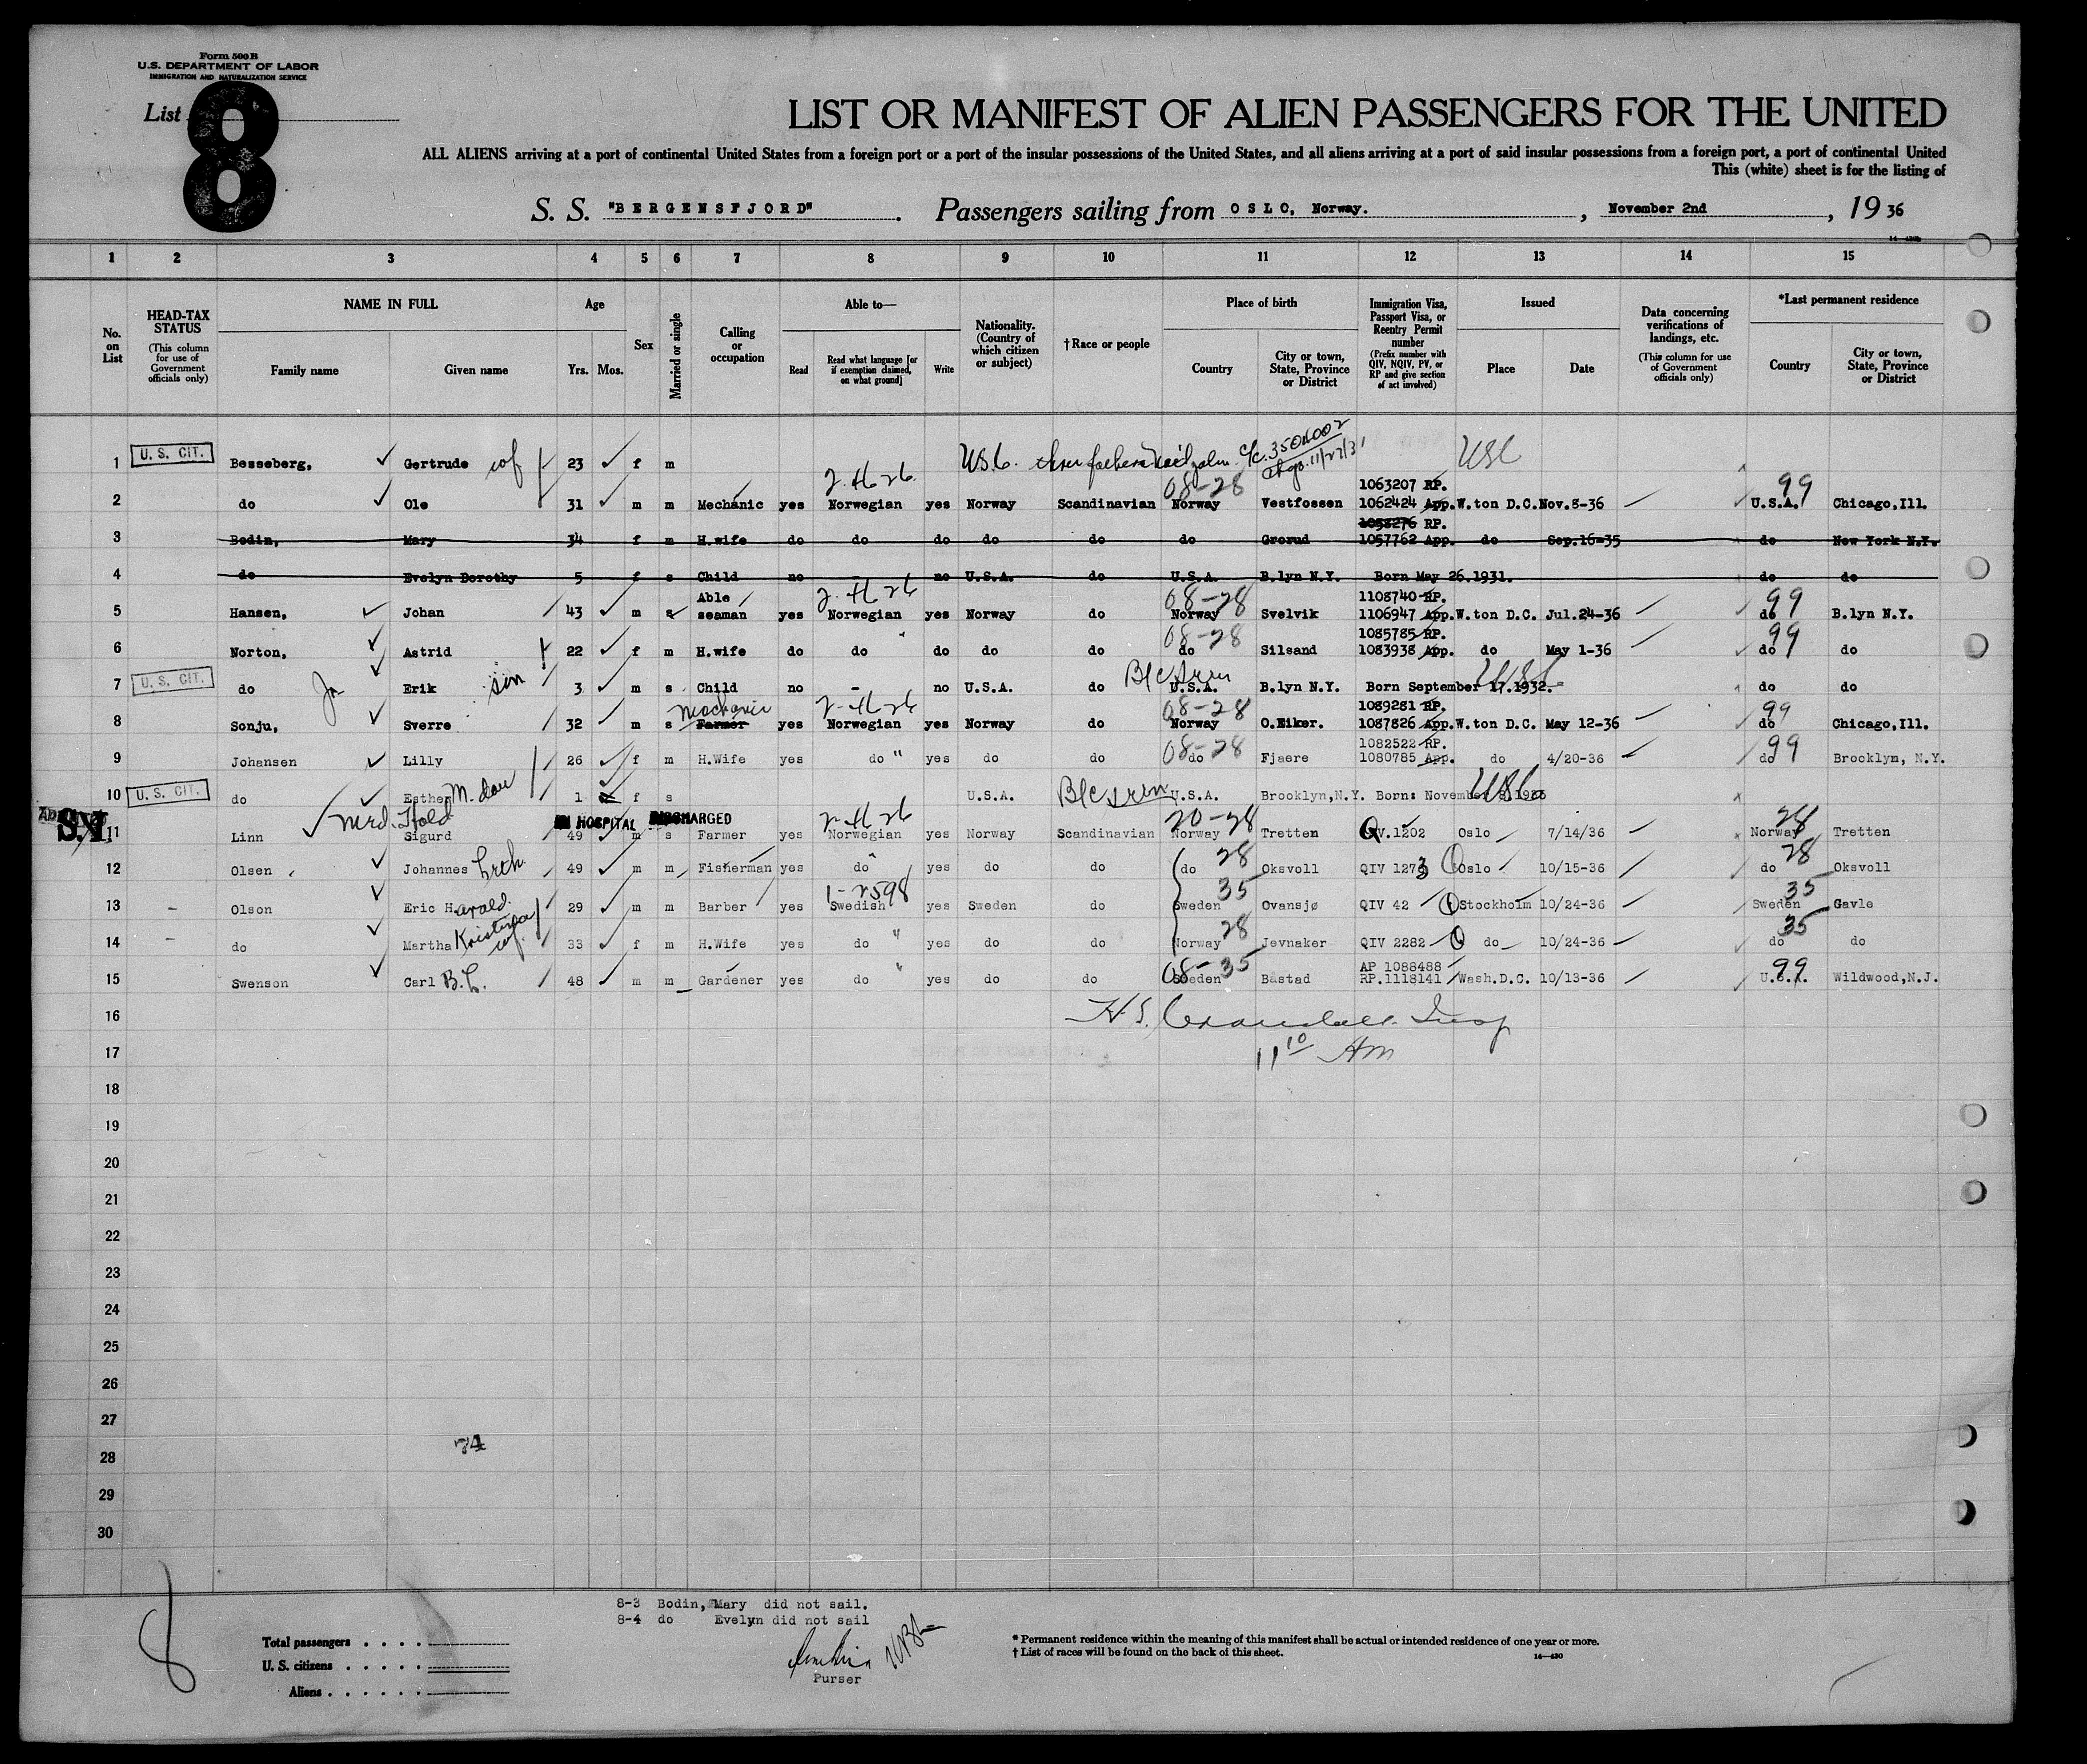 Form 500 B
U.S. DEPARTMENT OF LABOR
IMMIGRATION AND NATURALIZATION SERVICE
List 8
LIST OR MANIFEST OF ALIEN PASSENGERS FOR THE UNITED
ALL ALIENS arriving at a port of continental United States from a foreign port or a port of the insular possessions of the United States, and all aliens arriving at a port of said insular possessions from a foreign port, a port of continental United
This (white) sheet is for the listing of
S. S. "BERGENSFJORD" . Passengers sailing from OSLO, Norway. , November 2nd , 19 36
1 2 3 4 5 6 7 8 9 10 11 12 13 14 15
No. on List
HEAD-TAX STATUS (This column for use of Government officials only)
NAME IN FULL Family name Given name
Age Yrs. Mos.
Sex
Married or single
Calling or occupation
Able to— Read Read what language [or if exemption claimed, on what ground] Write
Nationality. (Country of which citizen or subject)
†Race or people
Place of birth Country City or town, State, Province or District
Immigration Visa, Passport Visa, or Reentry Permit number (Prefix number with QIV, NQIV, PV, or RP and give section of act involved)
Issued Place Date
Data concerning verifications of landings, etc. (This column for use of Government officials only)
*Last permanent residence Country City or town, State, Province or District
1 U. S. CIT. Besseberg, Gertrude wf 23 f m U.S.C. C/C. 3504002 11/27/31 USC
2 do Ole 31 m m Mechanic yes Norwegian yes Norway Scandinavian 08-28 Norway Vestfossen 1063207 RP. 1062424 App. W.ton D.C. Nov.8-36 99 U.S.A. Chicago,Ill.
3 Bodin, Mary 34 f m H.wife do do do do do do Grorud 1058276 RP. 1057762 App. do Sep.16-35 do New York N.Y.
4 do Evelyn Dorothy 5 f s Child no - no U.S.A. do U.S.A. B.lyn N.Y. Born May 26.1931. do do
5 Hansen, Johan 43 m s Able seaman yes Norwegian yes Norway do 08-28 Norway Svelvik 1108740 RP. 1106947 App. W.ton D.C. Jul.24-36 99 do B.lyn N.Y.
6 Norton, Astrid 22 f m H.wife do do do do do 08-28 do Silsand 1085785 RP. 1083938 App. do May 1-36 99 do do
7 U. S. CIT. do Jr Erik 3 m s Child no - no U.S.A. do U.S.A. B.lyn N.Y. Born September 17.1932. do do
8 Sonju, Sverre 32 m s Mechanic Farmer yes Norwegian yes Norway do 08-28 Norway O.Eiker. 1089281 RP. 1087826 App. W.ton D.C. May 12-36 99 do Chicago,Ill.
9 Johansen Lilly 26 f m H.Wife yes do " yes do do 08-28 do Fjaere 1082522 RP. 1080785 App. do 4/20-36 99 do Brooklyn, N.Y.
10 U. S. CIT. do Esther M. dau 1 f s U.S.A. U.S.A. Brooklyn,N.Y. Born: November USC
S.I. 11 Linn Med. Hold Sigurd IN HOSPITAL DISCHARGED 49 m s Farmer yes Norwegian yes Norway Scandinavian 20-28 Norway Tretten QV.1202 Oslo 7/14/36 28 Norway Tretten
12 Olsen Johannes 49 m m Fisherman yes do " yes do do 28 do Oksvoll QIV 1273 Oslo 10/15-36 28 do Oksvoll
13 - Olson Eric Harald. 29 m m Barber yes Swedish yes Sweden do 35 Sweden Ovansjø QIV 42 Stockholm 10/24-36 35 Sweden Gavle
14 - do Martha Kristina wf. 33 f m H.Wife yes do " yes do do 28 Norway Jevnaker QIV 2282 do 10/24-36 35 do do
15 Swenson Carl B. L. 48 m m Gardener yes do " yes do do 08-35 Sweden Båstad AP 1088488 RP.1118141 Wash.D.C. 10/13-36 99 U.S.A. Wildwood,N.J.
16
17 11 10 AM
18
19
20
21
22
23
24
25
26
27
28 74
29
30
8
8-3 Bodin, Mary did not sail.
8-4 do Evelyn did not sail
Purser
Total passengers . . . .
U. S. citizens . . . . .
Aliens . . . . . .
* Permanent residence within the meaning of this manifest shall be actual or intended residence of one year or more.
† List of races will be found on the back of this sheet.